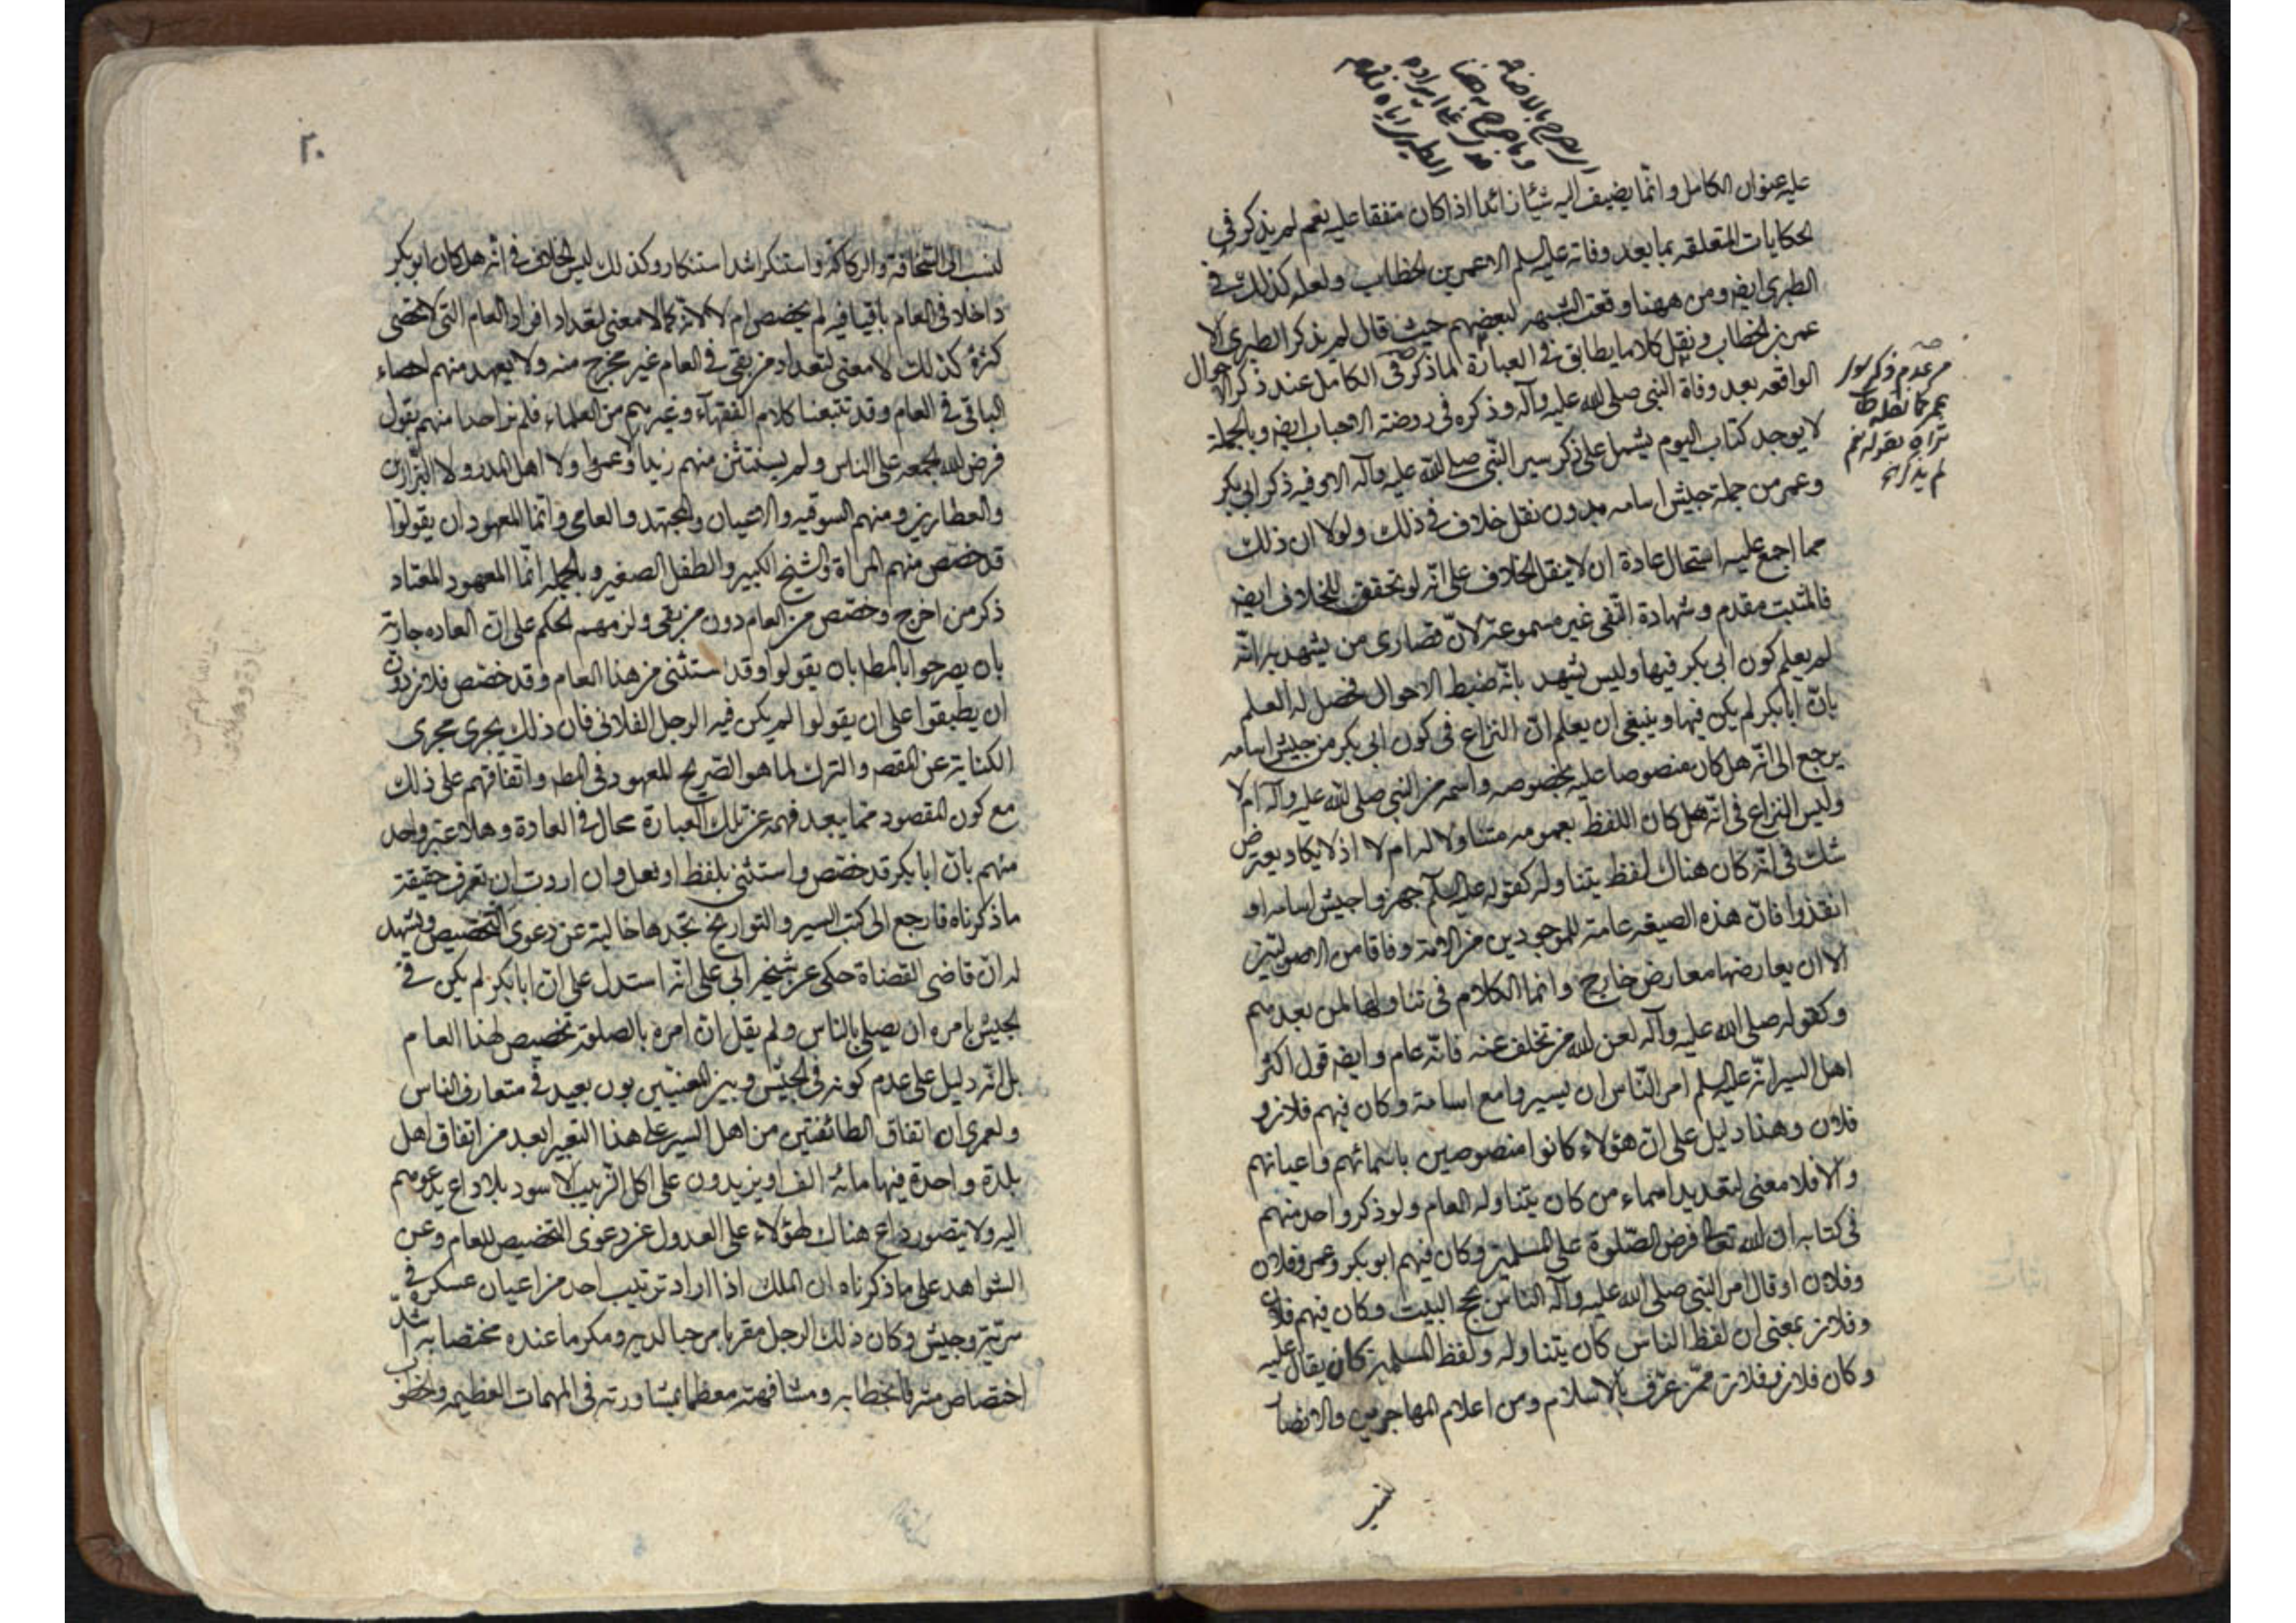 عليه عنوان الكامل وانّما يضيف اليه شيئا زائدا اذا كان متفقا عليه نعم لم يذكر في
الحكايات المتعلقه بما بعد وفاته عليه السلم الا عمر بن الخطاب ولعله كذلك في
الطبري ايضه ومن ههنا وقعت الشبهه لبعضهم حيث قال لم يذكر الطبري الا
عمر بن الخطاب ونقل كلاما يطابق في العبارة لما ذكر في الكامل عند ذكر الاحوال
الواقعه بعد وفاة النبي صلى الله عليه وآله وذكره في روضة الاحباب ايضه وبالجملة
لا يوجد كتاب اليوم يشمل على ذكر سير النّبي صلى الله عليه وآله الا وفيه ذكر ابي بكر
وعمر من جملة جيش اسامه بدون نقل خلاف في ذلك ولولا ان ذلك
مما اجمع عليه استحال عادة ان لا ينقل الخلاف على انّه لو تحقق الخلاف ايضه
فالمثبت مقدم وشهادة النّفي غير مسموعة لانّ قصارى من يشهد به انّه
لم يعلم كون ابي بكر فيها وليس يشهد بانّه ضبط الاحوال فحصل له العلم
بانّ ابا بكر لم يكن فيها وينبغي ان يعلم انّ النزاع في كون ابي بكر من جيش اسامه
يرجع الى انّه هل كان منصوصا عليه بخصوصه واسمه من النبي صلى الله عليه وآله ام لا
وليس النزاع في انّه هل كان اللفظ بعمومه متناولا له ام لا اذ لا يكاد يعترض
شك في انّه كان هناك لفظ يتناوله كقوله عليه السلم جهزوا جيش اسامه او
انفذوا فانّ هذه الصيغه عامة للموجودين من الامّة وفاقا من الاصوليّين
الا ان يعارضها معارض خارج وانما الكلام في تناولها لمن بعدهم
وكقوله صلى الله عليه وآله لعن الله من تخلف عنه فانّه عام وايضه قول اكثر
اهل السير انّه عليه السلم امر النّاس ان يسيروا مع اسامة وكان فيهم فلان و
فلان وهذا دليل على انّ هؤلاء كانوا منصوصين باسمائهم واعيانهم
والّا فلا معنى لتعديد اسماء من كان يتناوله العام ولو ذكر واحد منهم
في كتابه ان الله تعالى فرض الصّلوة على المسلمين وكان فيهم ابو بكر وعمر وفلان
وفلان او قال امر النبي صلى الله عليه وآله النّاس بحج البيت وكان فيهم فلان
وفلان بمعنى ان لفظ الناس كان يتناوله ولفظ المسلمين كان يقال عليه
وكان فلان وفلان ممّن عرّف بالاسلام ومن اعلام المهاجرين والانصا
من عدم ذكر
عمر كما نقله
تراه بقوله نعم
لم يذكر
٢٠
لنسب الى السّخافة والركاكة واستنكر اشد استنكار وكذلك ليس الخلاف في انّه هل كان ابو بكر
داخلا في العام باقيا فيه لم يخصص ام لا لانّه كما لا معنى لتعداد افراد العام التي لا تحصى
كثرة كذلك لا معنى لتعداد من بقي في العام غير مخرج منه ولا يعهد منهم احصاء
الباقي في العام وقد تتبعنا كلام الفقهآء وغيرهم من العلماء فلم نر احدا منهم يقول
فرض الله الجمعه على الناس ولم يستثن منهم زيدا وعمروا ولا اهل المدر ولا البزّازين
والعطارين ومنهم السوقيه والاعيان والمجتهد والعامى وانّما المعهود ان يقولوا
قد خصّص منهم المراة والشيخ الكبير والطفل الصغير وبالجمله انّما المعهود المعتاد
ذكر من اخرج وخصّص من العام دون من بقي ولزمهم الحكم على انّ العاده جارية
بان يصرحوا بالمط بان يقولوا وقد استثنى من هذا العام وقد خصّص فلان دون
ان يطبقوا على ان يقولوا لم يكن فيه الرجل الفلانى فان ذلك يجرى مجرى
الكناية عن المقصه والترك لما هو الصّريح المعهود في المط واتفاقهم على ذلك
مع كون المقصود ممّا يبعد فهمه عن تلك العبارة محال في العادة وهلّا عبّر واحد
منهم بانّ ابا بكر قد خصّص واستثنى بلفظ او فعل وان اردت ان تعرف حقيقة
ما ذكرناه فارجع الى كتب السير والتواريخ تجدها خالية عن دعوى التخصيص ويشهد
له انّ قاضى القضاة حكى عن شيخه ابى على انّه استدل على انّ ابا بكر لم يكن في
الجيش بامره ان يصلى بالناس ولم يقل انّ امره بالصلوة تخصيص لهذا العام
بل انّه دليل على عدم كونه في الجيش وبين المعنيّين بون بعيد في متعارف الناس
ولعمرى ان اتفاق الطائفتين من اهل السير على هذا التعبير ابعد من اتفاق اهل
بلدة واحدة فيها مائة الف او يزيدون على اكل الزّبيب الاسود بلا داع يدعوهم
اليه ولا يتصور داع هناك لهؤلاء على العدول عن دعوى التخصيص للعام وعن
الشواهد على ما ذكرناه ان الملك اذا اراد ترتيب احد من اعيان عسكره في
سريّة وجيش وكان ذلك الرجل مقربا مرحبا لديه ومكرما عنده مختصا به اشدّ
اختصاص مشرفا بخطابه ومشافهته معظما بمشاورته في المهمات العظيمه والخطو